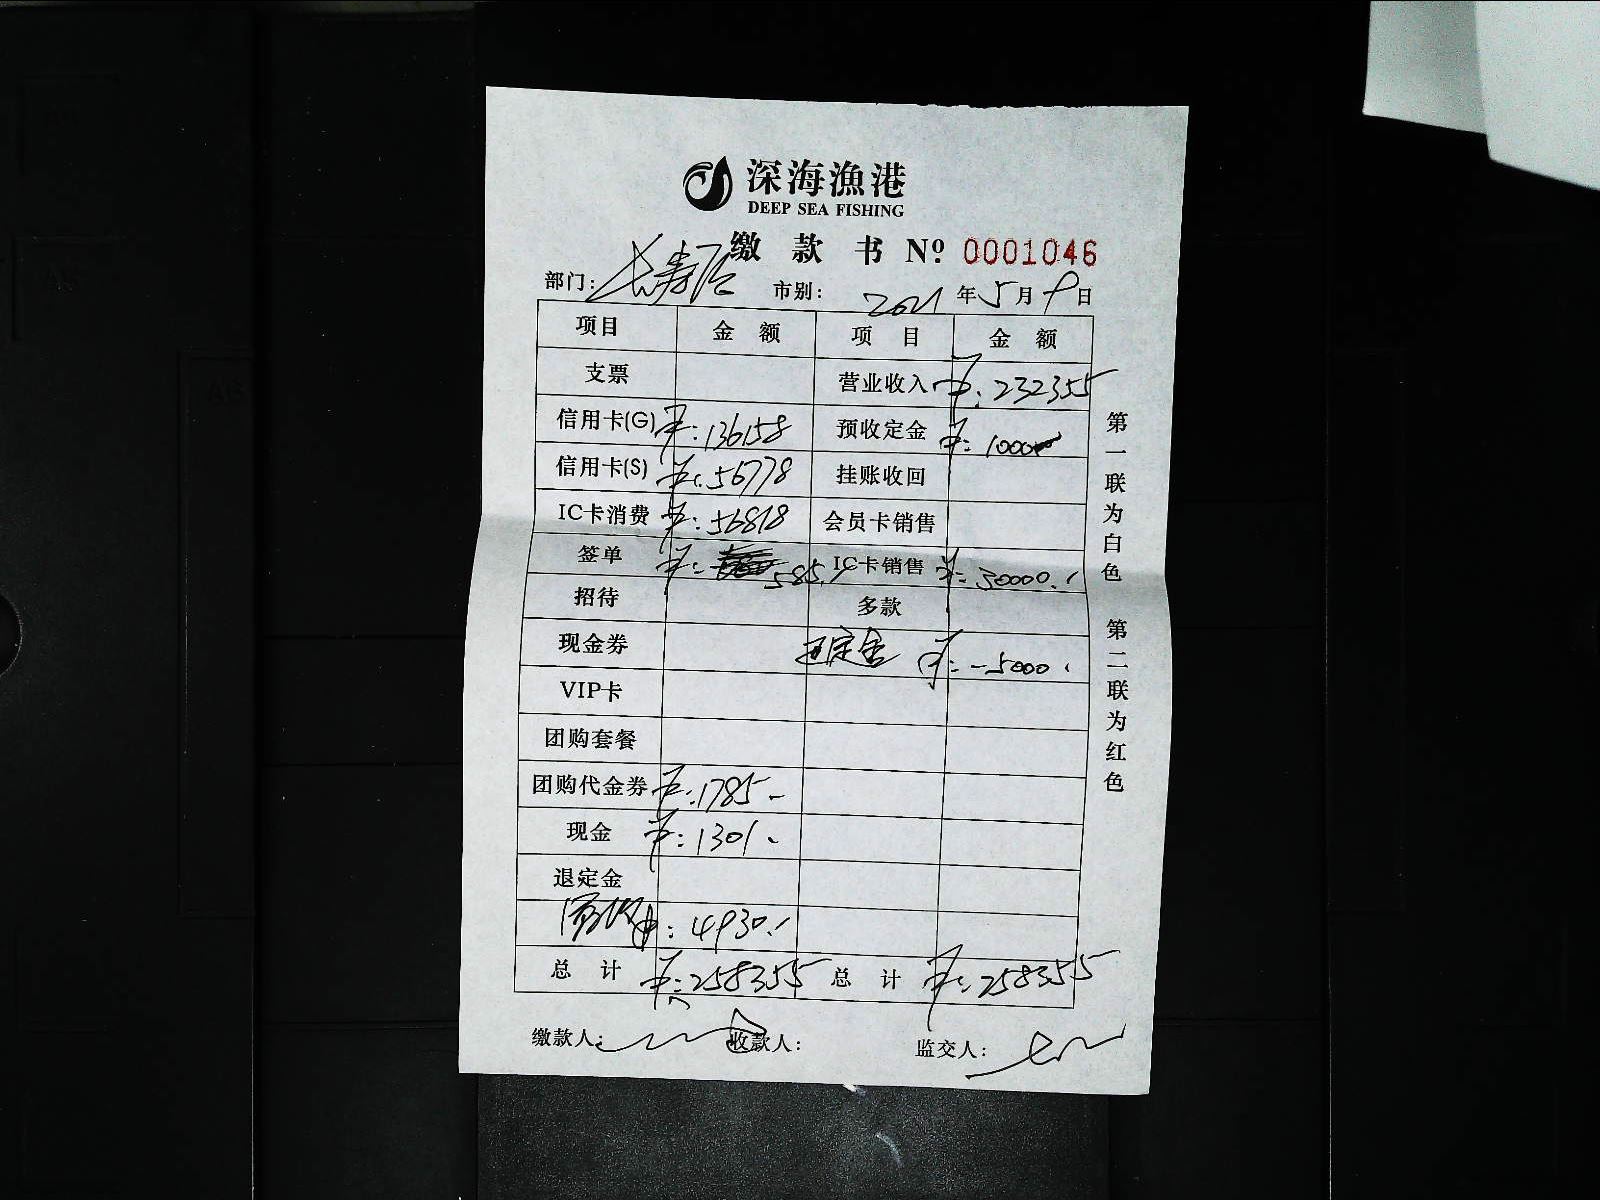 深海渔港
DEEP SEA FISHING
缴款书 Nº 0001046
部门：长寿店 市别： 2021年5月9日
项目 金额 项目 金额
支票 营业收入 ¥:232355
信用卡(G) ¥:136158 预收定金 ¥:1000
信用卡(S) ¥:56778 挂账收回
IC卡消费 ¥:56818 会员卡销售
签单 ¥:585.- IC卡销售 ¥:30000.-
招待 多款
现金券 退定金 ¥:-5000.
VIP卡
团购套餐
团购代金券 ¥:1785-
现金 ¥:1301.
退定金
¥:4930.-
总计 ¥:258355 总计 ¥:258355
缴款人： 收款人： 监交人：
第一联为白色 第二联为红色